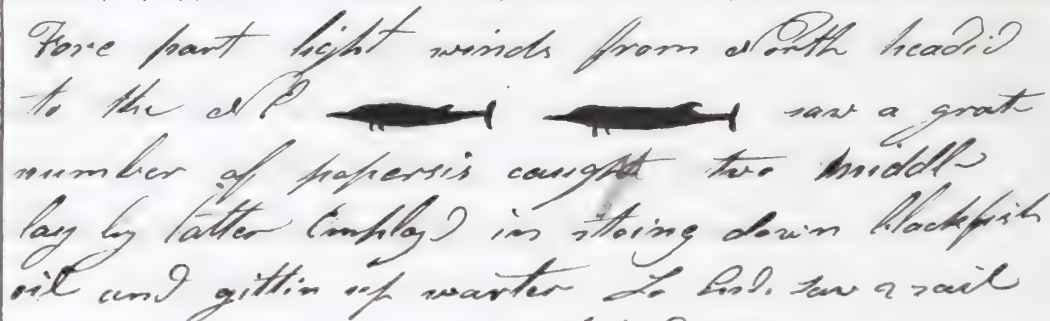 Fore part light winds from North headid
to the NE saw a grate
number of popersis caught two middle
lay by latter Employd in stoing down blackfish
oil and gittin up warter So Ends saw a sail